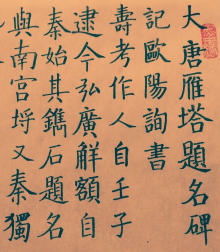 大唐雁塔題名碑
記歐陽詢書
壽考作人自壬子
逮今弘廣解額自
秦始其鐫石題名
與南宮埒又秦獨